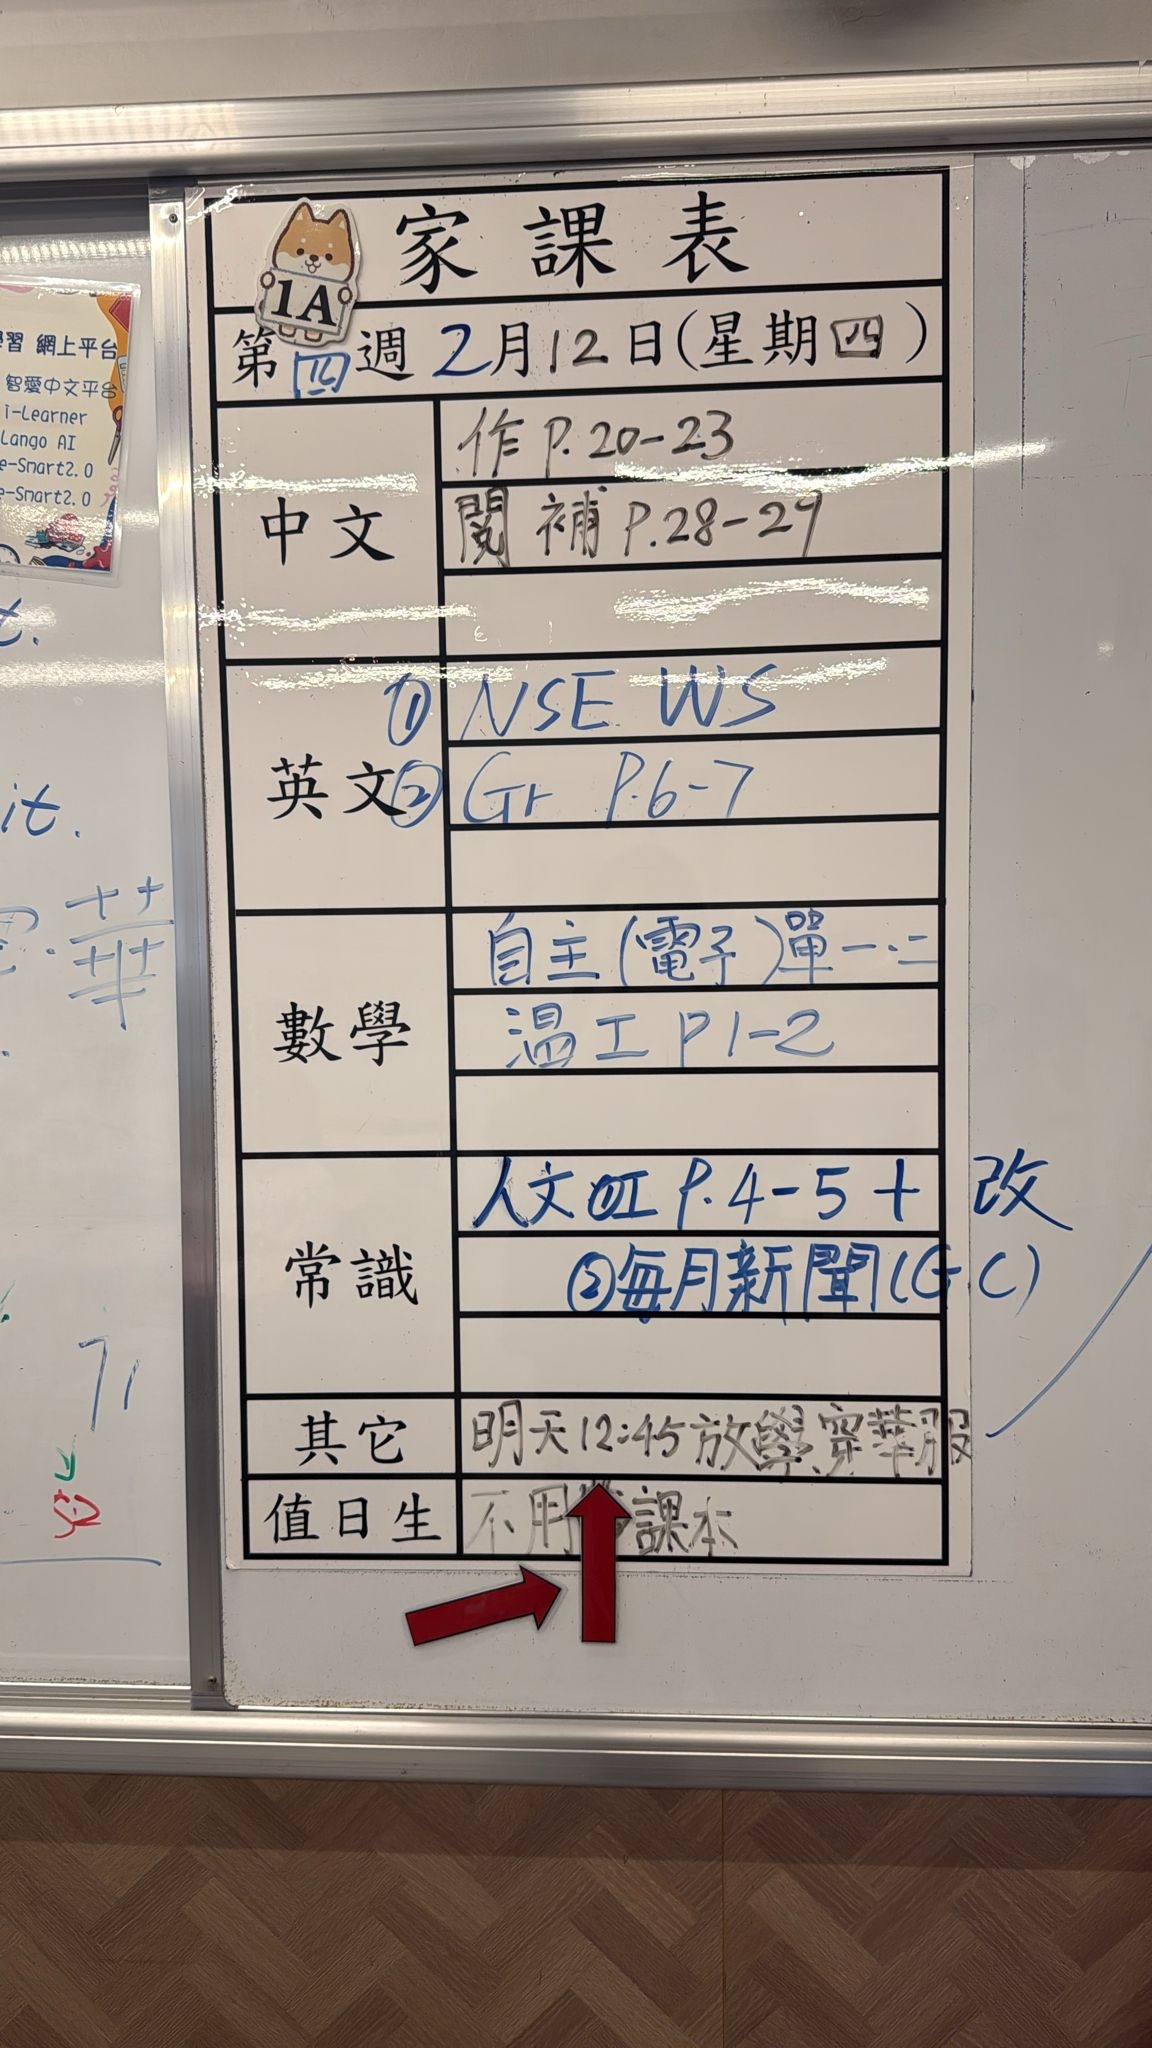 家課表
1A
第四週 2月12日(星期四)
中文
作 P.20-23
閱補 P.28-29
英文
① NSE WS
② Gr P.6-7
數學
自主(電子)單一.二
溫工 P1-2
常識
人文 工 P.4-5 + 改
②每月新聞(GC)
其它
明天12:45放學,穿華服
值日生
不用 課本
學習 網上平台
智愛中文平台
i-Learner
Lango AI
e-Smart2.0
e-Smart2.0
t.
it.
華